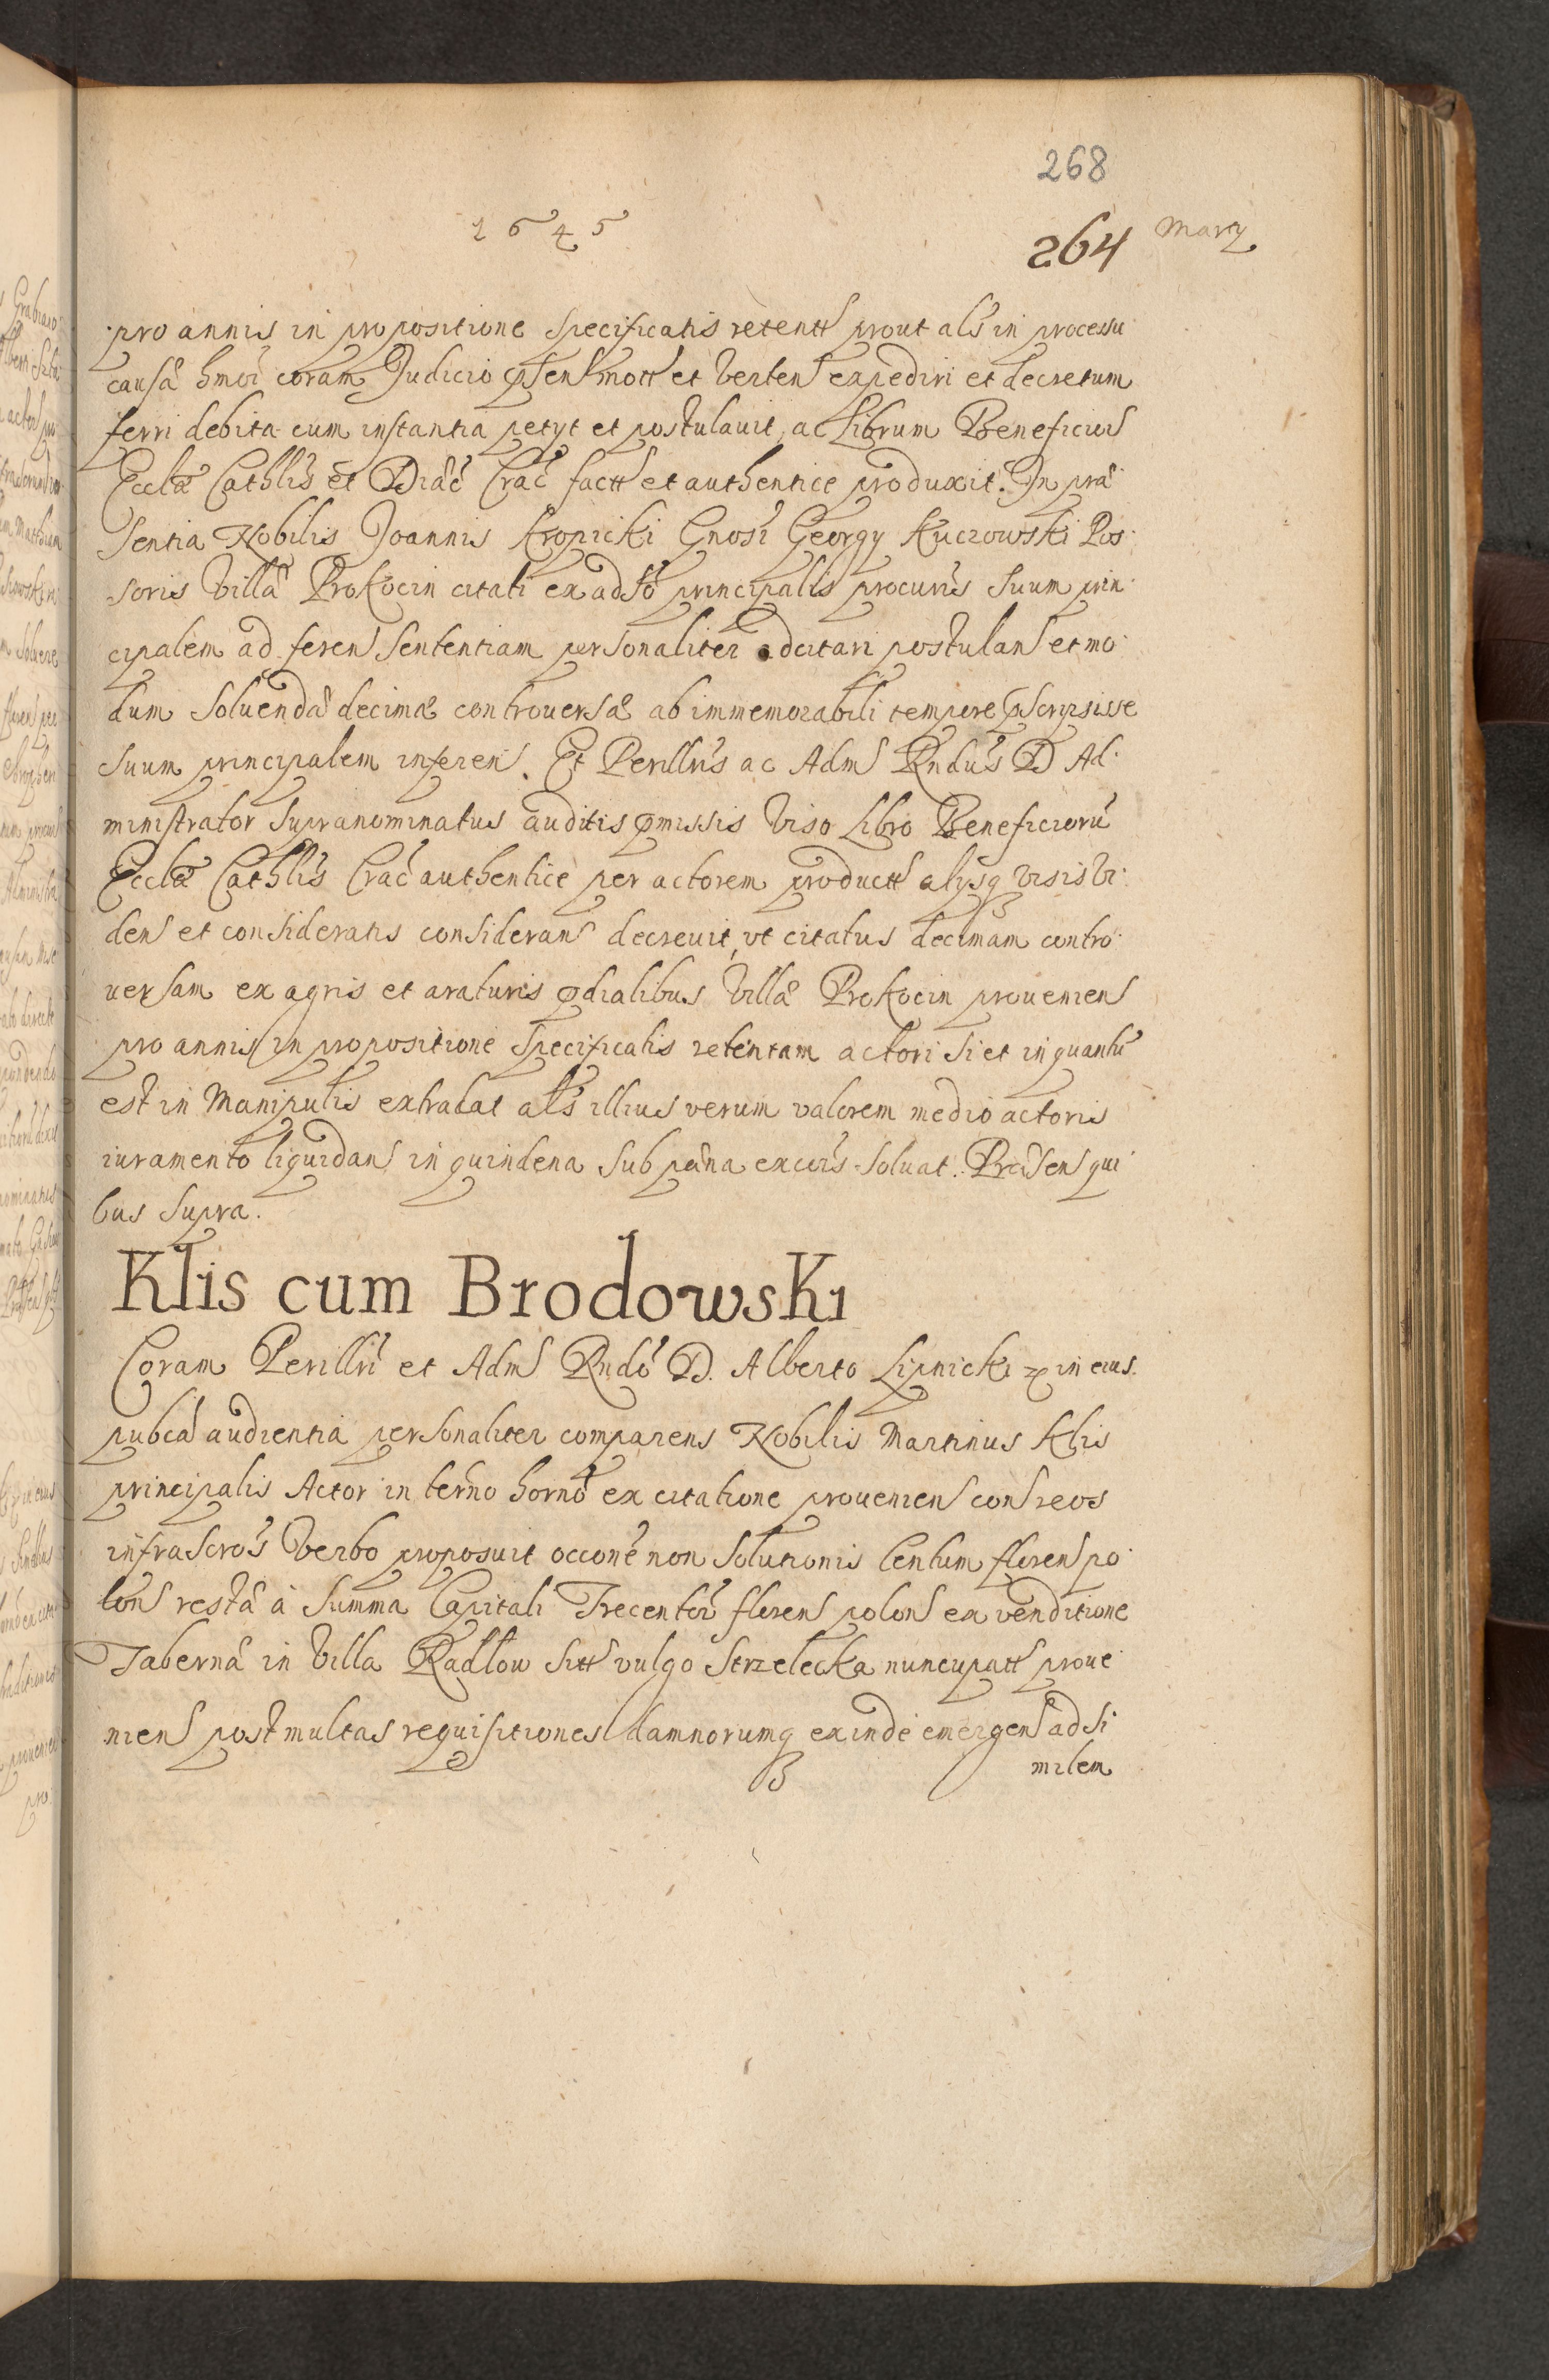 268
1645
264 Marty
pro annis in propositione specificatis retentt prout als in processu
causæ hmoi coram Judicio psen mott et verten expediri et decretum
ferri debita cum instantia petyt et postulauit, ac Librum Beneficior
Ecclæ Cathlis et Diæc Crac factt et authentice produxit. In præ
sentia Nobilis Joannis Kropicki Gnosi Georgy Kuczowski Pos
soris Villæ Prokocin citati ex adso principalis procuris suum prin
cipalem ad feren sententiam personaliter adcitari postulan et mo
dum soluendæ decimæ controuersæ ab immemorabili tempore pscripsisse
suum principalem inferen. Et Perillris ac Adm Rndus D Ad
ministrator supranominatus auditis pmissis viso Libro Beneficiorū
Ecclæ Cathlis Crac authentice per actorem productt alysq visis vi
den et consideratis consideran decreuit, vt citatus decimam contro
uersam ex agris et araturis pdialibus Villæ Prokocin prouenien
pro annis in propositione specificatis retentam actori si et in quantū
est in Manipulis extradat als illius verum valorem medio actoris
iuramento liquidan in quindena sub pæna excois soluat. Præsen qui
bus supra.
Klis cum Brodowski
Coram Perillri et Adm Rndo D. Alberto Lipnicki &c in eius
pubca audientia personaliter comparens Nobilis Martinus Klis
principalis Actor in terno horno ex citatione prouenien con reos
infrascros verbo proposuit occone non solutionis Centum floren po
lon restæ à summa Capitali Trecentor floren polon ex venditione
Tabernæ in Villa Radlow sitt vulgo Strzelecka nuncupatt proue
nien post multas requisitiones damnorumq exinde emergen ad si
milem